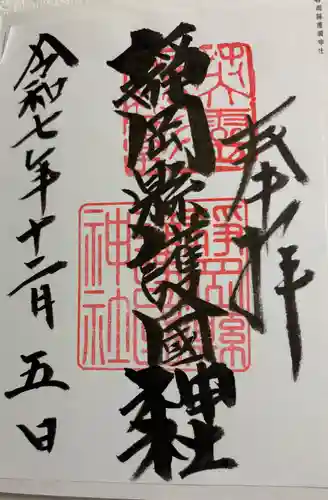 奉拝
靜岡縣護國神社
令和七年十二月五日
靜岡縣護國神社